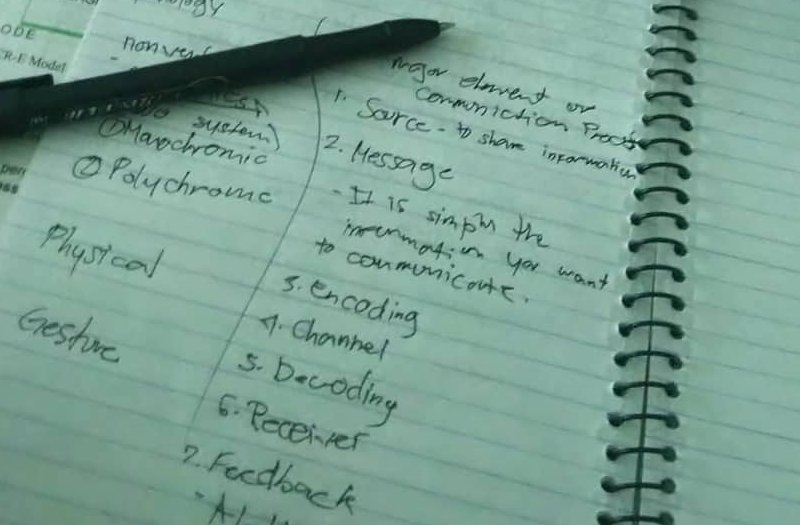 ODE
R-E Model
nonver
system)
① Monochromic
② Polychromic
Physical
Gesture
major element or
communiction Process
1. Source - to share information
2. Message
- It is simply the
information you want
to communicate.
3. encoding
4. Channel
5. Decoding
6. Receiver
7. Feedback